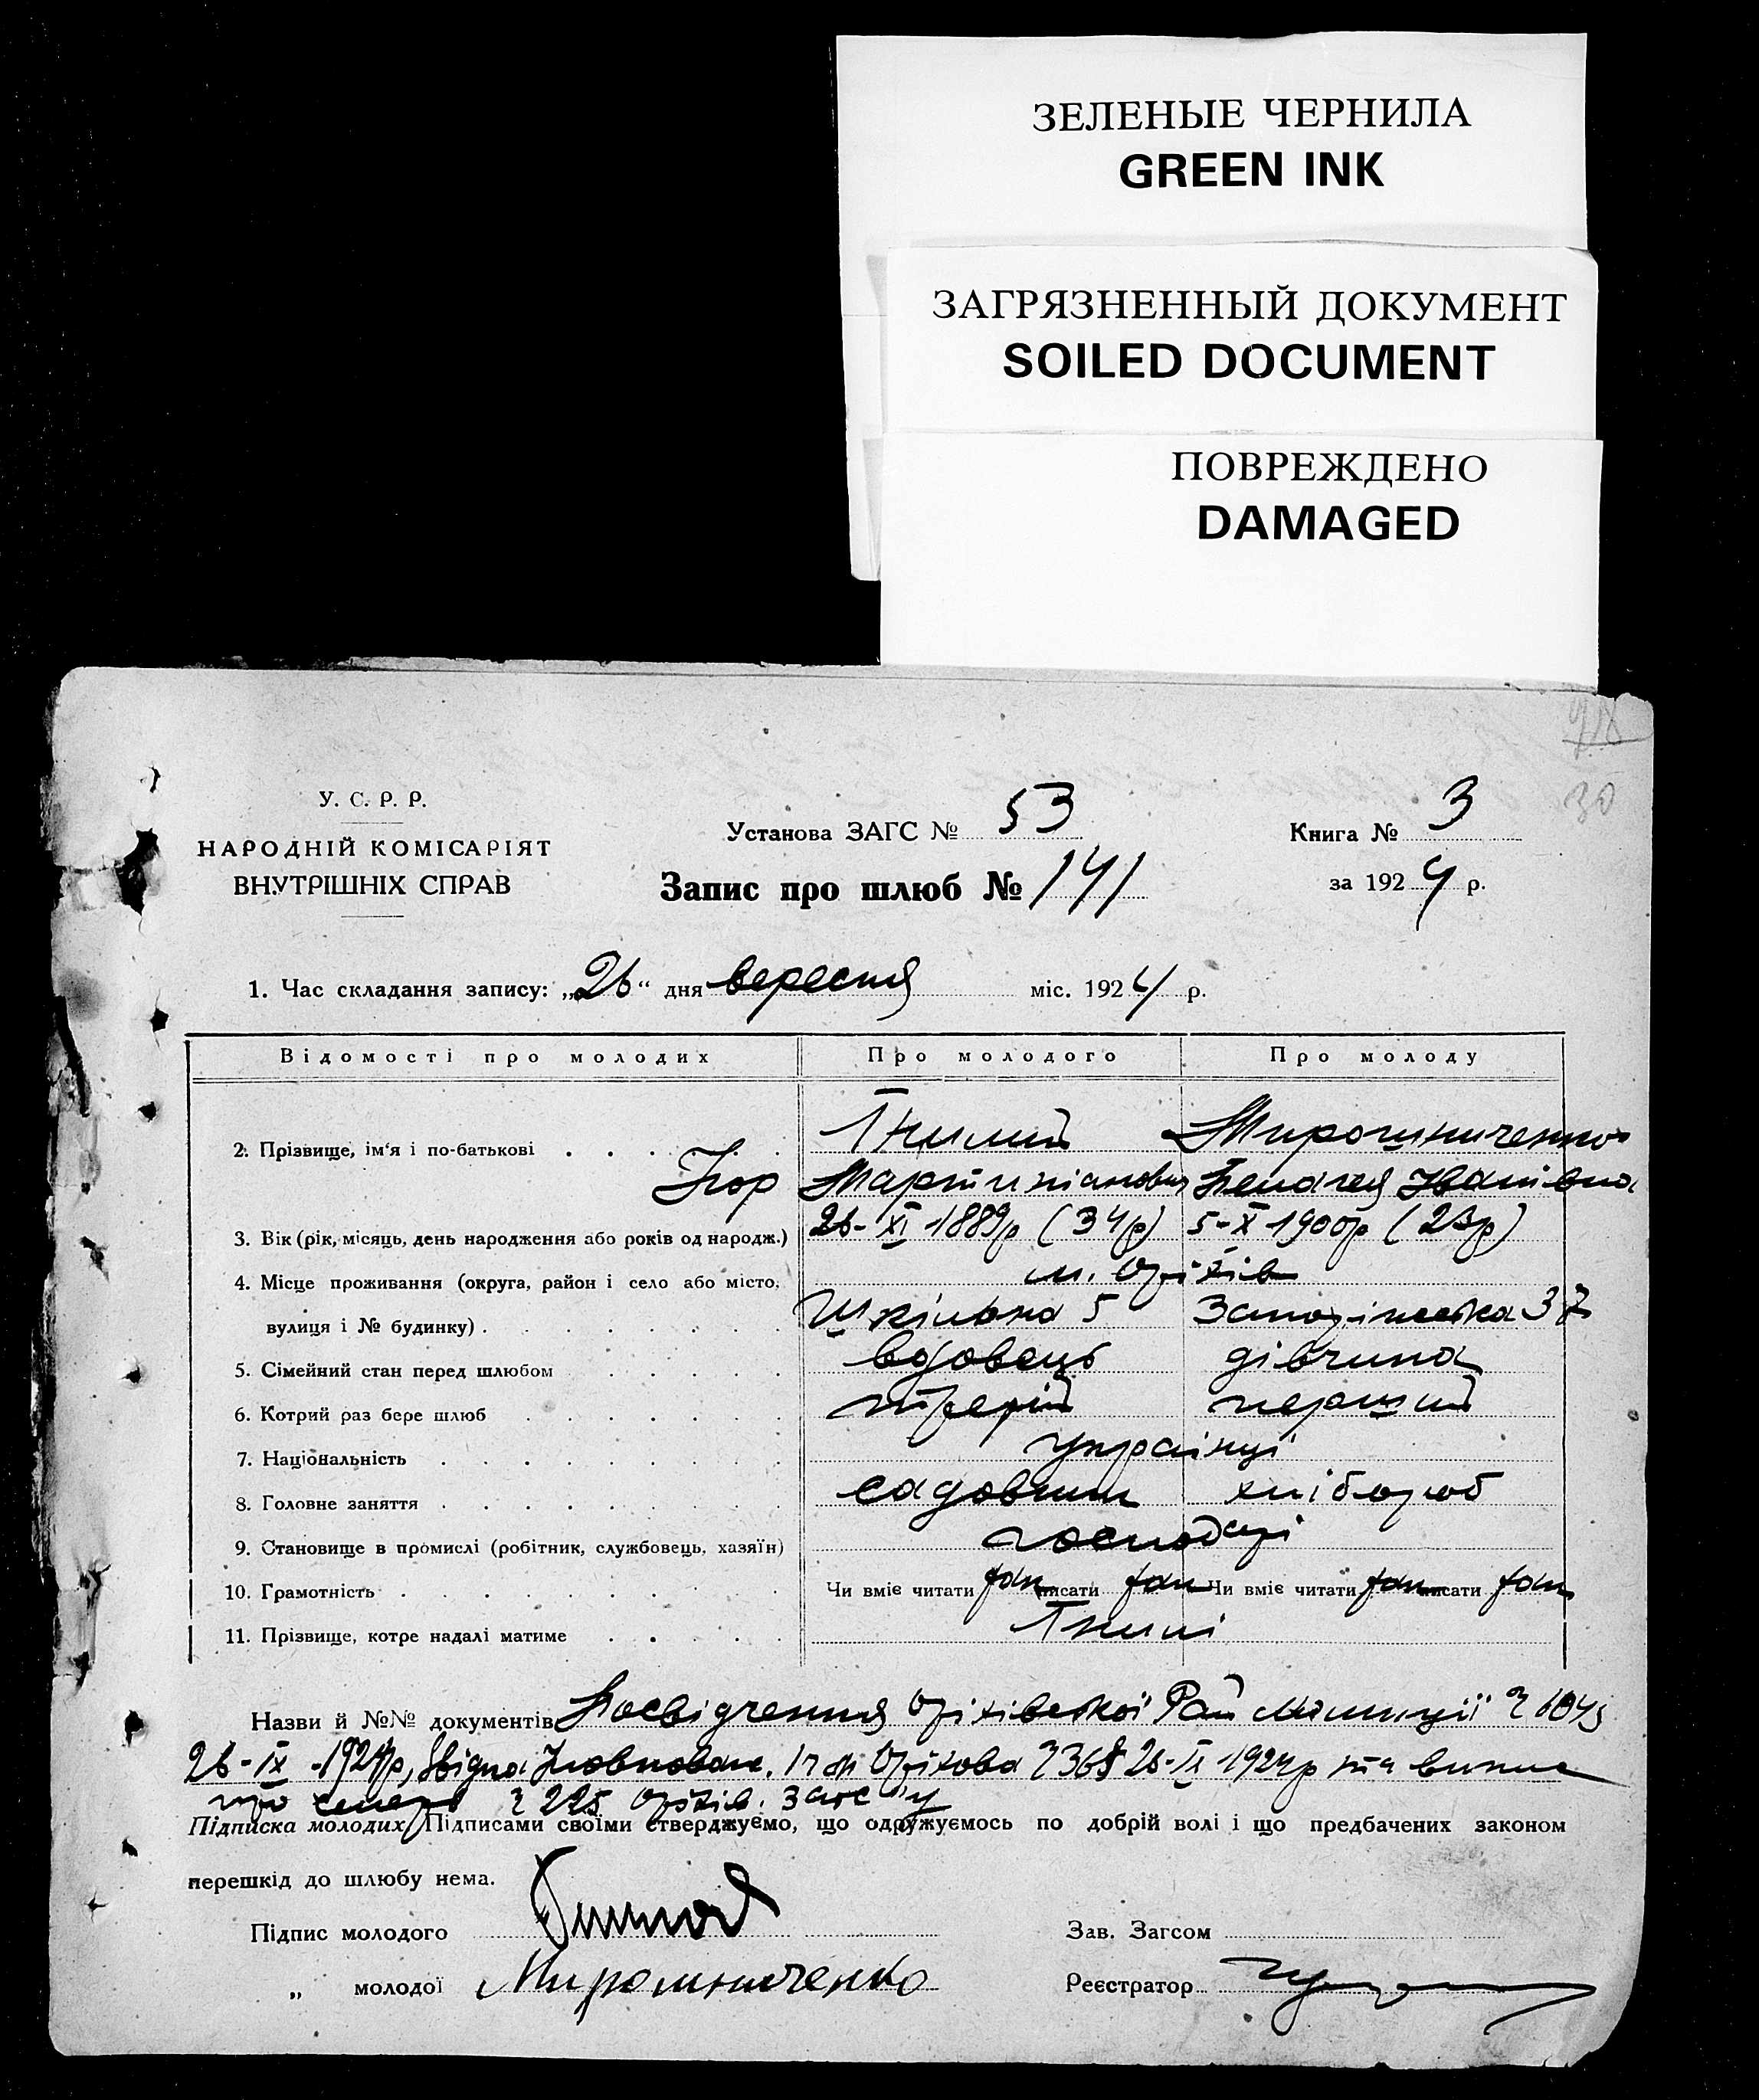 ЗЕЛЕНЫЕ ЧЕРНИЛА
GREEN INK
ЗАГРЯЗНЕННЫЙ ДОКУМЕНТ
SOILED DOCUMENT
ПОВРЕЖДЕНО
DAMAGED
30
У. С. Р. Р.
НАРОДНІЙ КОМІСАРІЯТ
ВНУТРІШНІХ СПРАВ
Установа ЗАГС № 53
Запис про шлюб № 141
Книга № 3
за 1924 р.
1. Час складання запису: „26" дня вересня міс. 1924 р.
Відомості про молодих Про молодого Про молоду
2. Прізвище, ім'я і по-батькові Гнилий Мирошниченко
Ігор Мартиніанович Пелагея Іванівна
3. Вік (рік, місяць, день народження або років од народж.) 26-XI 1889р (34р) 5-X 1900р (23р)
4. Місце проживання (округа, район і село або місто, м. Оріхів
вулиця і № будинку) Шкільна 5 Запорізька 37
5. Сімейний стан перед шлюбом вдовець дівчина
6. Котрий раз бере шлюб третій перший
7. Національність українці
8. Головне заняття садовник хлібороб
9. Становище в промислі (робітник, службовець, хазяїн) господарі
10. Грамотність Чи вміє читати так писати так Чи вміє читати так писати так
11. Прізвище, котре надалі матиме Гнилі
Назви й №№ документів Посвідчення Оріхівської Рай Міліції
26-IX-1924р, Оріхова 26-IX 1924р та випис
про смерть № 225 Оріхів. Загс'у
Підписка молодих Підписами своїми стверджуємо, що одружуємось по добрій волі і що предбачених законом
перешкід до шлюбу нема.
Підпис молодого
Зав. Загсом
„ молодої Мирошниченко
Реєстратор